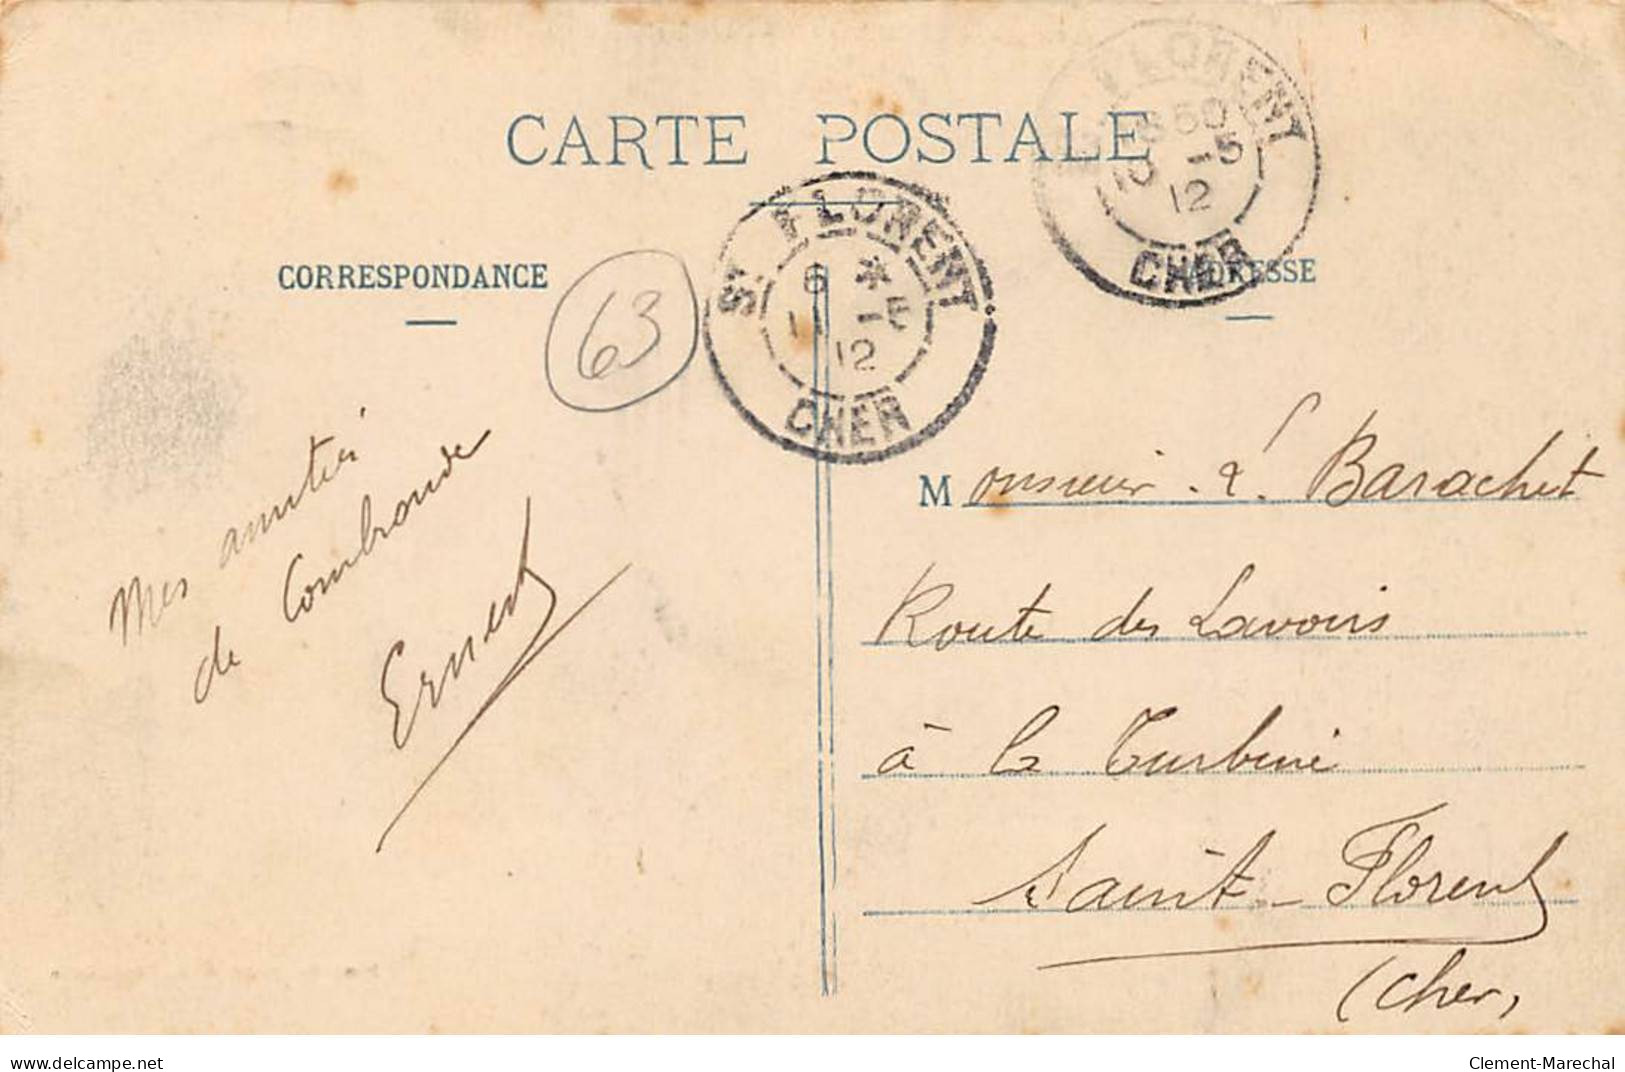 CARTE POSTALE
CORRESPONDANCE
ADRESSE
63
ST FLORENT
6 *
11 -5
12
CHER
FLORENT
50
10 -5
12
CHER
Mes amitiés
de Combronde
Ernest
Monsieur . L. Barachet
Route des Lavoirs
à la Turbine
Saint-Florent
(Cher)
www.delcampe.net
Clement-Marechal